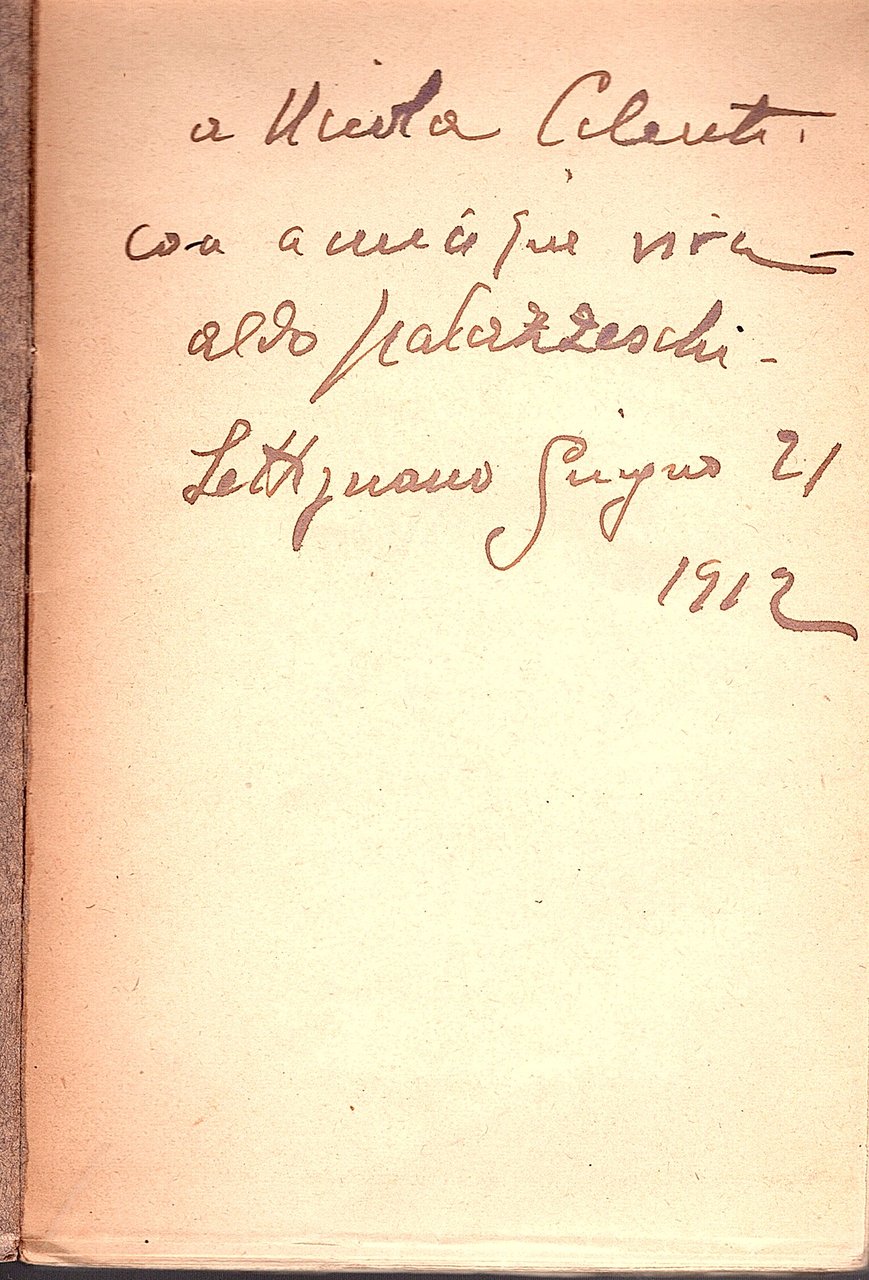 a Nicola
con viva –
aldo palazzeschi -
Settignano Giugno 21
1912